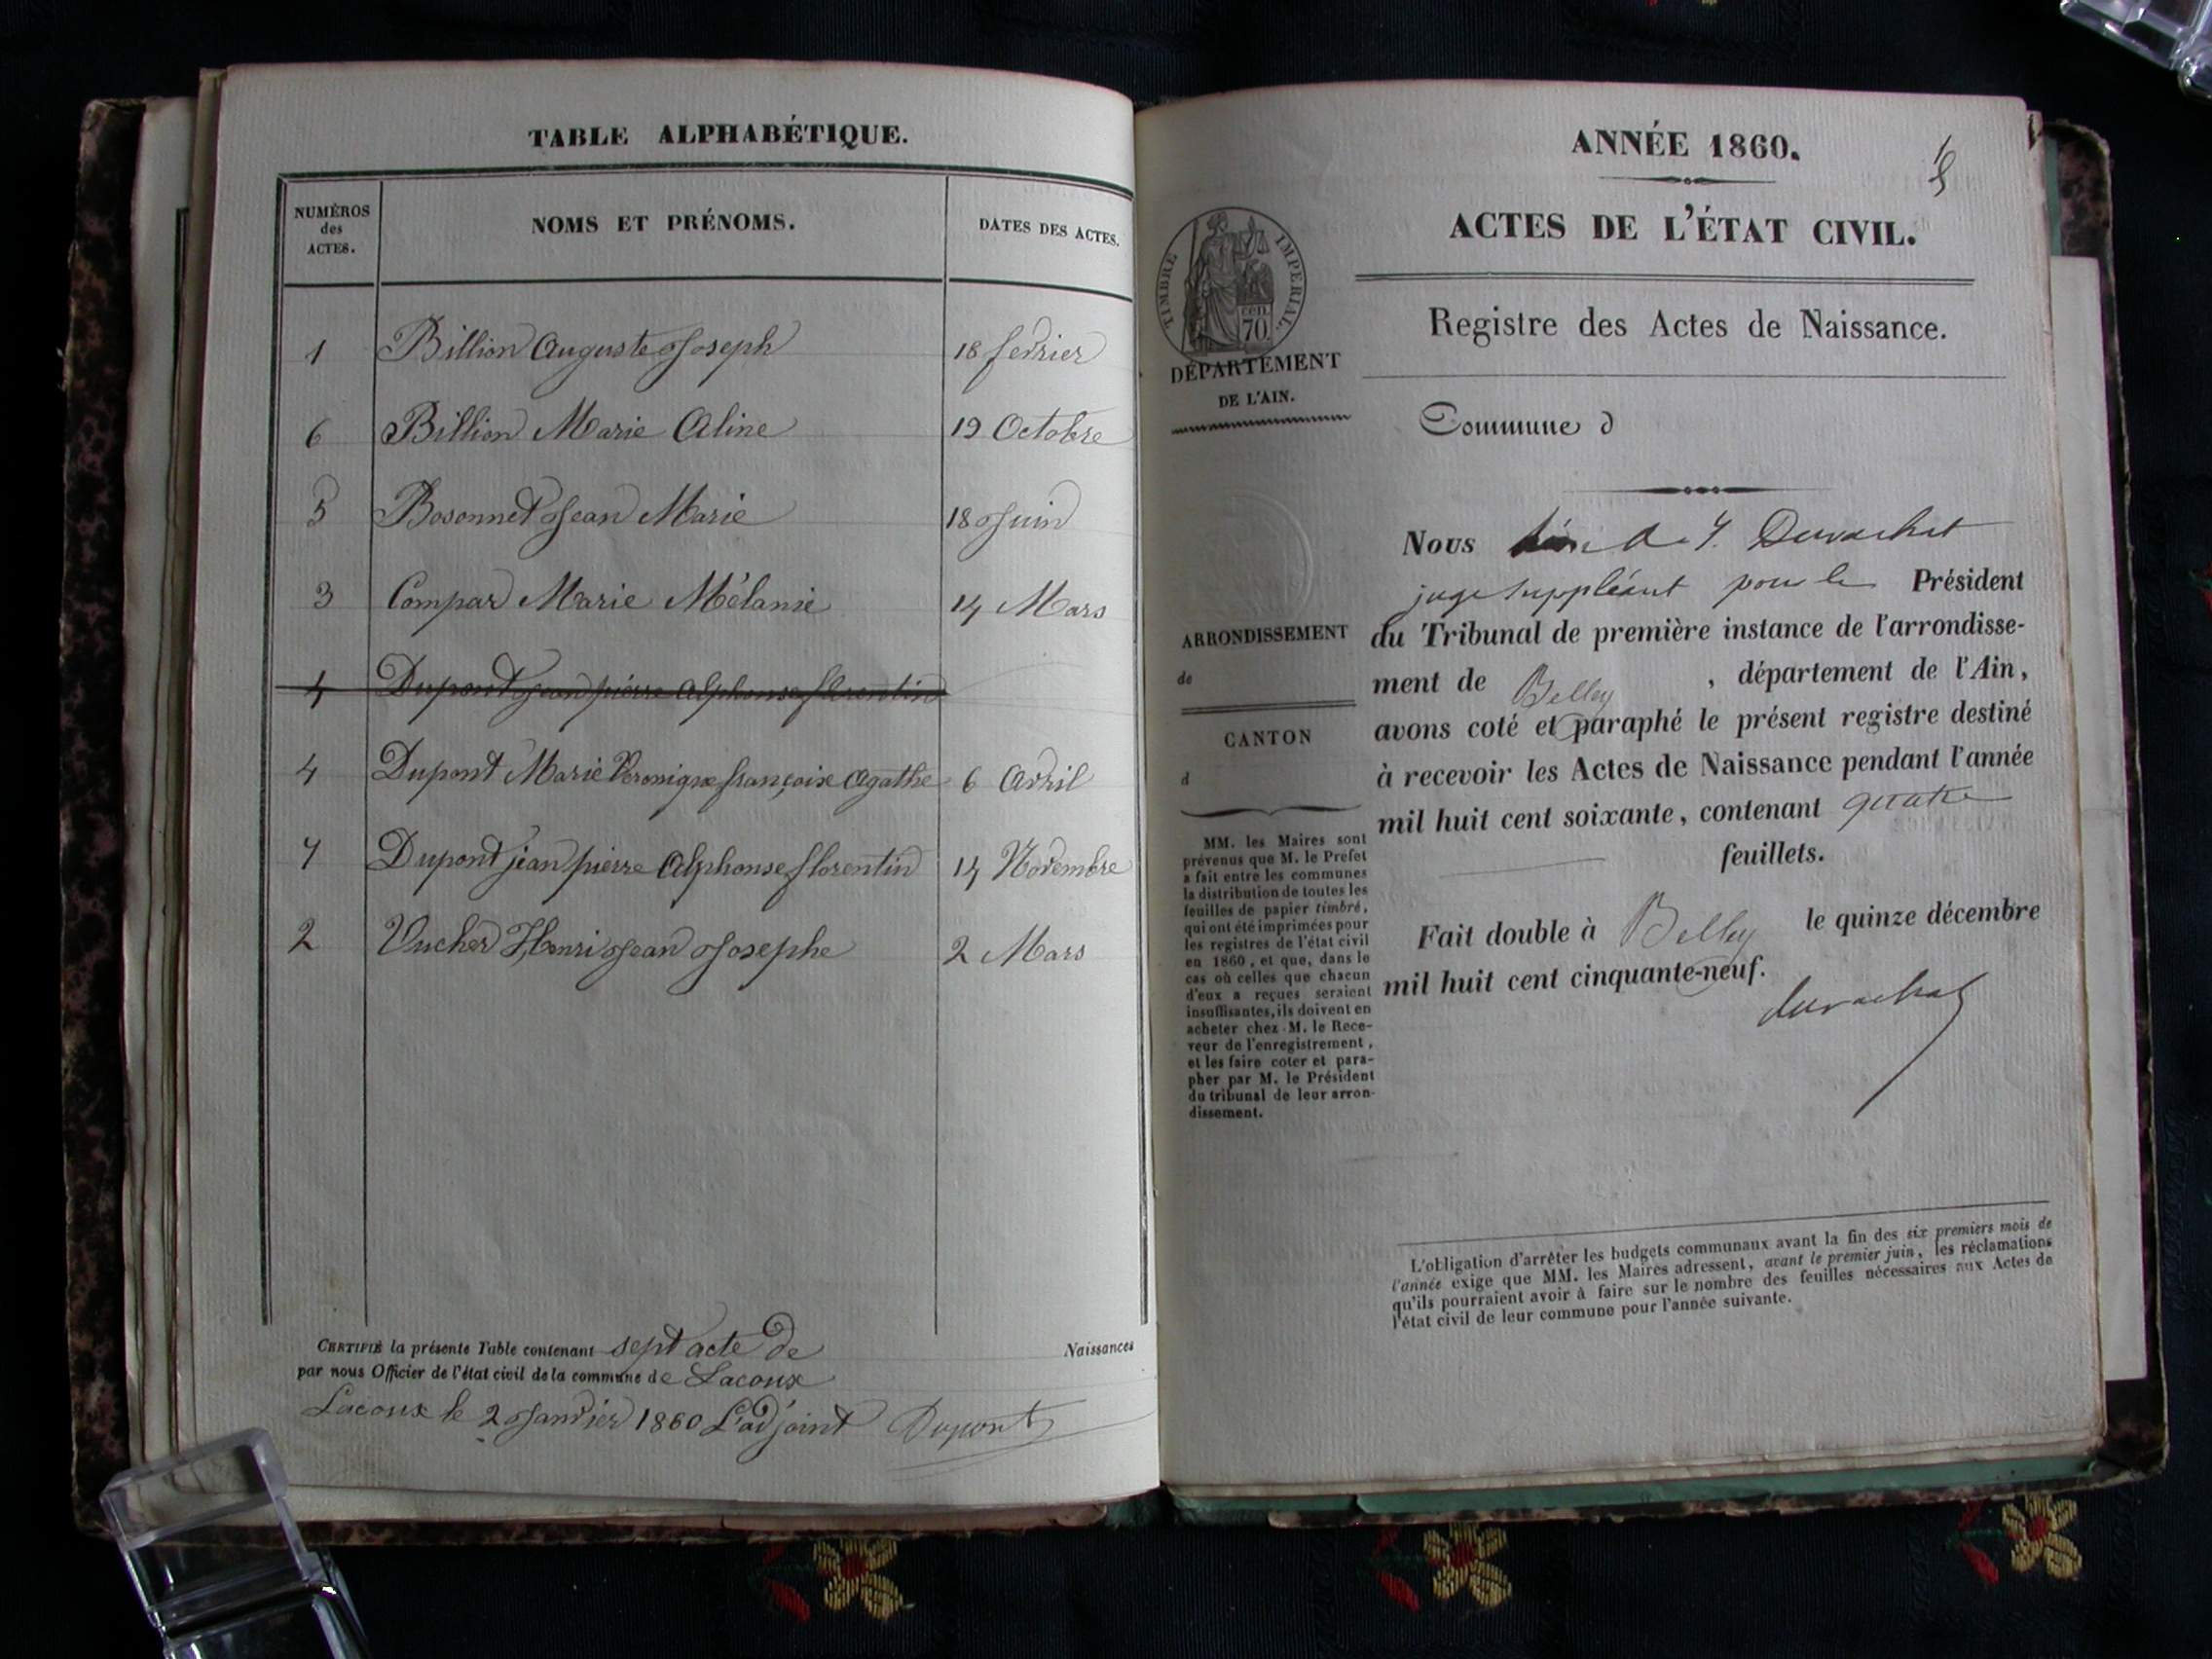 TABLE ALPHABÉTIQUE.
NUMÉROS des ACTES.
NOMS ET PRÉNOMS.
DATES DES ACTES.
1 Billion Auguste Joseph 18 fevrier
6 Billion Marie Aline 19 Octobre
5 Bosonnet Jean Marie 18 Juin
3 Compar Marie Mélanie 14 Mars
4 Dupont Jean pierre Alphonse florentin
4 Dupont Marie Veronique françoise Agathe 6 Avril
7 Dupont jean pierre Alphonse florentin 14 Novembre
2 Vucher Henri Jean Josephe 2 Mars
CERTIFIÉ la présente Table contenant sept acte de Naissances
par nous Officier de l'état civil de la commune de Lacoux
Lacoux le 2 Janvier 1860 L'adjoint Dupont
ANNÉE 1860.
ACTES DE L'ÉTAT CIVIL.
TIMBRE IMPERIAL.
cen. 70
DÉPARTEMENT
DE L'AIN.
Registre des Actes de Naissance.
Commune d
ARRONDISSEMENT
de
CANTON
d
MM. les Maires sont
prévenus que M. le Préfet
a fait entre les communes
la distribution de toutes les
feuilles de papier timbré,
qui ont été imprimées pour
les registres de l'état civil
en 1860, et que, dans le
cas où celles que chacun
d'eux a reçues seraient
insuffisantes, ils doivent en
acheter chez M. le Rece-
veur de l'enregistrement,
et les faire coter et para-
pher par M. le Président
du tribunal de leur arron-
dissement.
Nous Duvachat
juge suppléant pour le Président
du Tribunal de première instance de l'arrondisse-
ment de Belley, département de l'Ain,
avons coté et paraphé le présent registre destiné
à recevoir les Actes de Naissance pendant l'année
mil huit cent soixante, contenant quatre
feuillets.
Fait double à Belley le quinze décembre
mil huit cent cinquante-neuf.
duvachat
L'obligation d'arrêter les budgets communaux avant la fin des six premiers mois de
l'année exige que MM. les Maires adressent, avant le premier juin, les réclamations
qu'ils pourraient avoir à faire sur le nombre des feuilles nécessaires aux Actes de
l'état civil de leur commune pour l'année suivante.